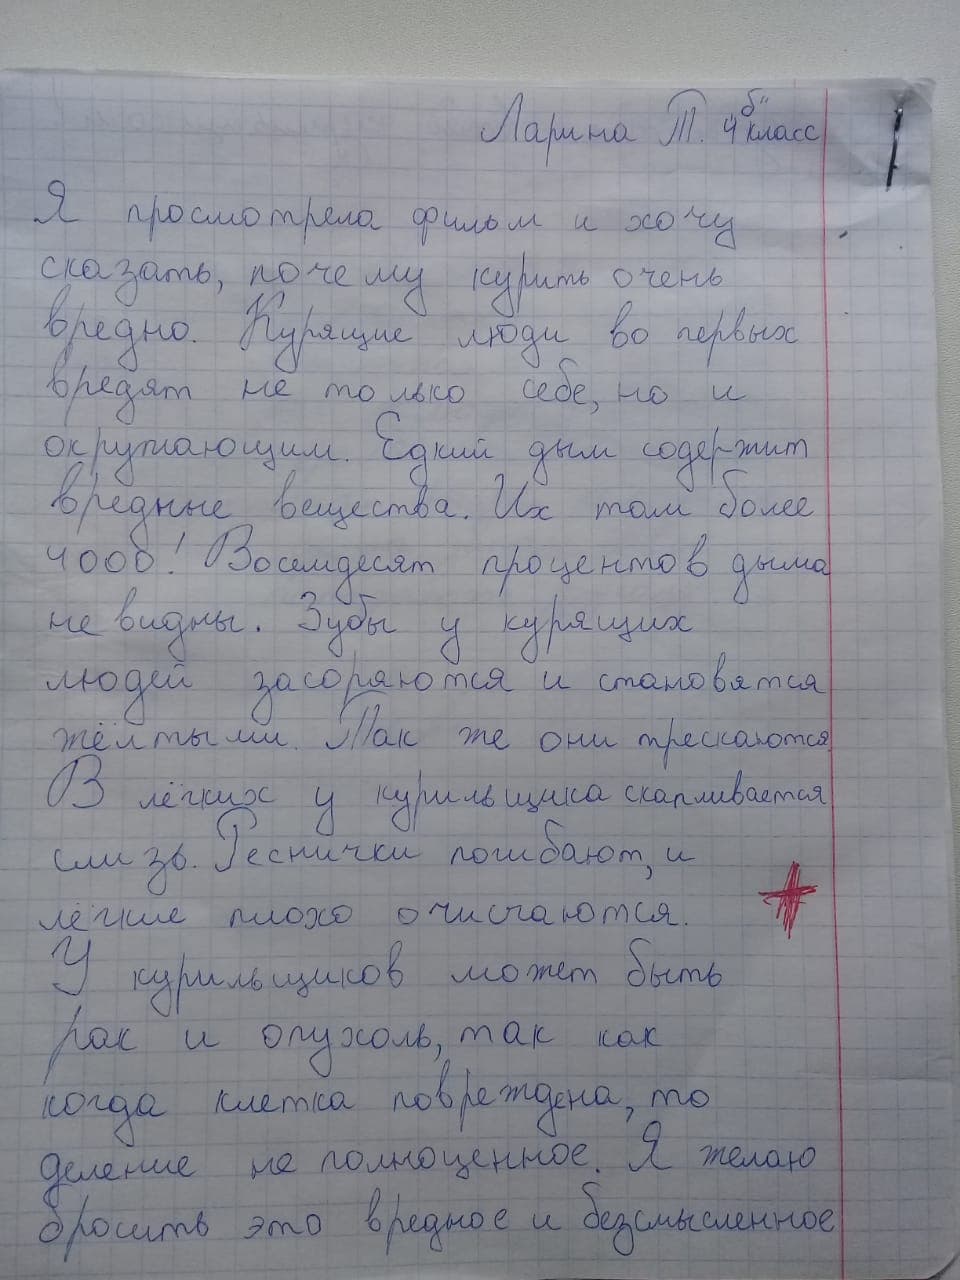 Ларина Т. 4 "б" класс
Я просмотрела фильм и хочу
сказать, почему курить очень
вредно. Курящие люди во первых
вредят не только себе, но и
окружающим. Едкий дым содержит
вредные вещества. Их там более
4000! Восемдесят процентов дыма
не видны. Зубы у курящих
людей засоряются и становятся
жёлтыми. Так же они трескаются
В лёгких у курильщика скапливается
слизь. Реснички погибают, и
лёгкие плохо очисчаются.
У курильщиков может быть
рак и опухоль, так как
когда клетка повреждена, то
деление не полноценное. Я желаю
бросить это вредное и безсмысленное